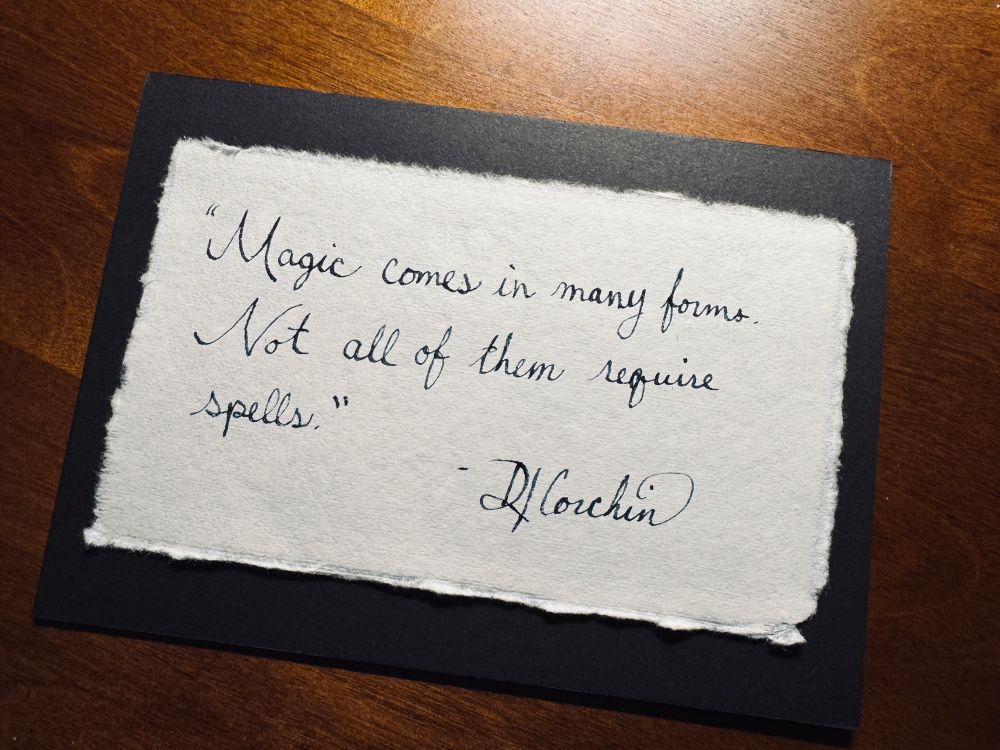 “Magic comes in many forms.
Not all of them require
spells.”
- DJ Corchin